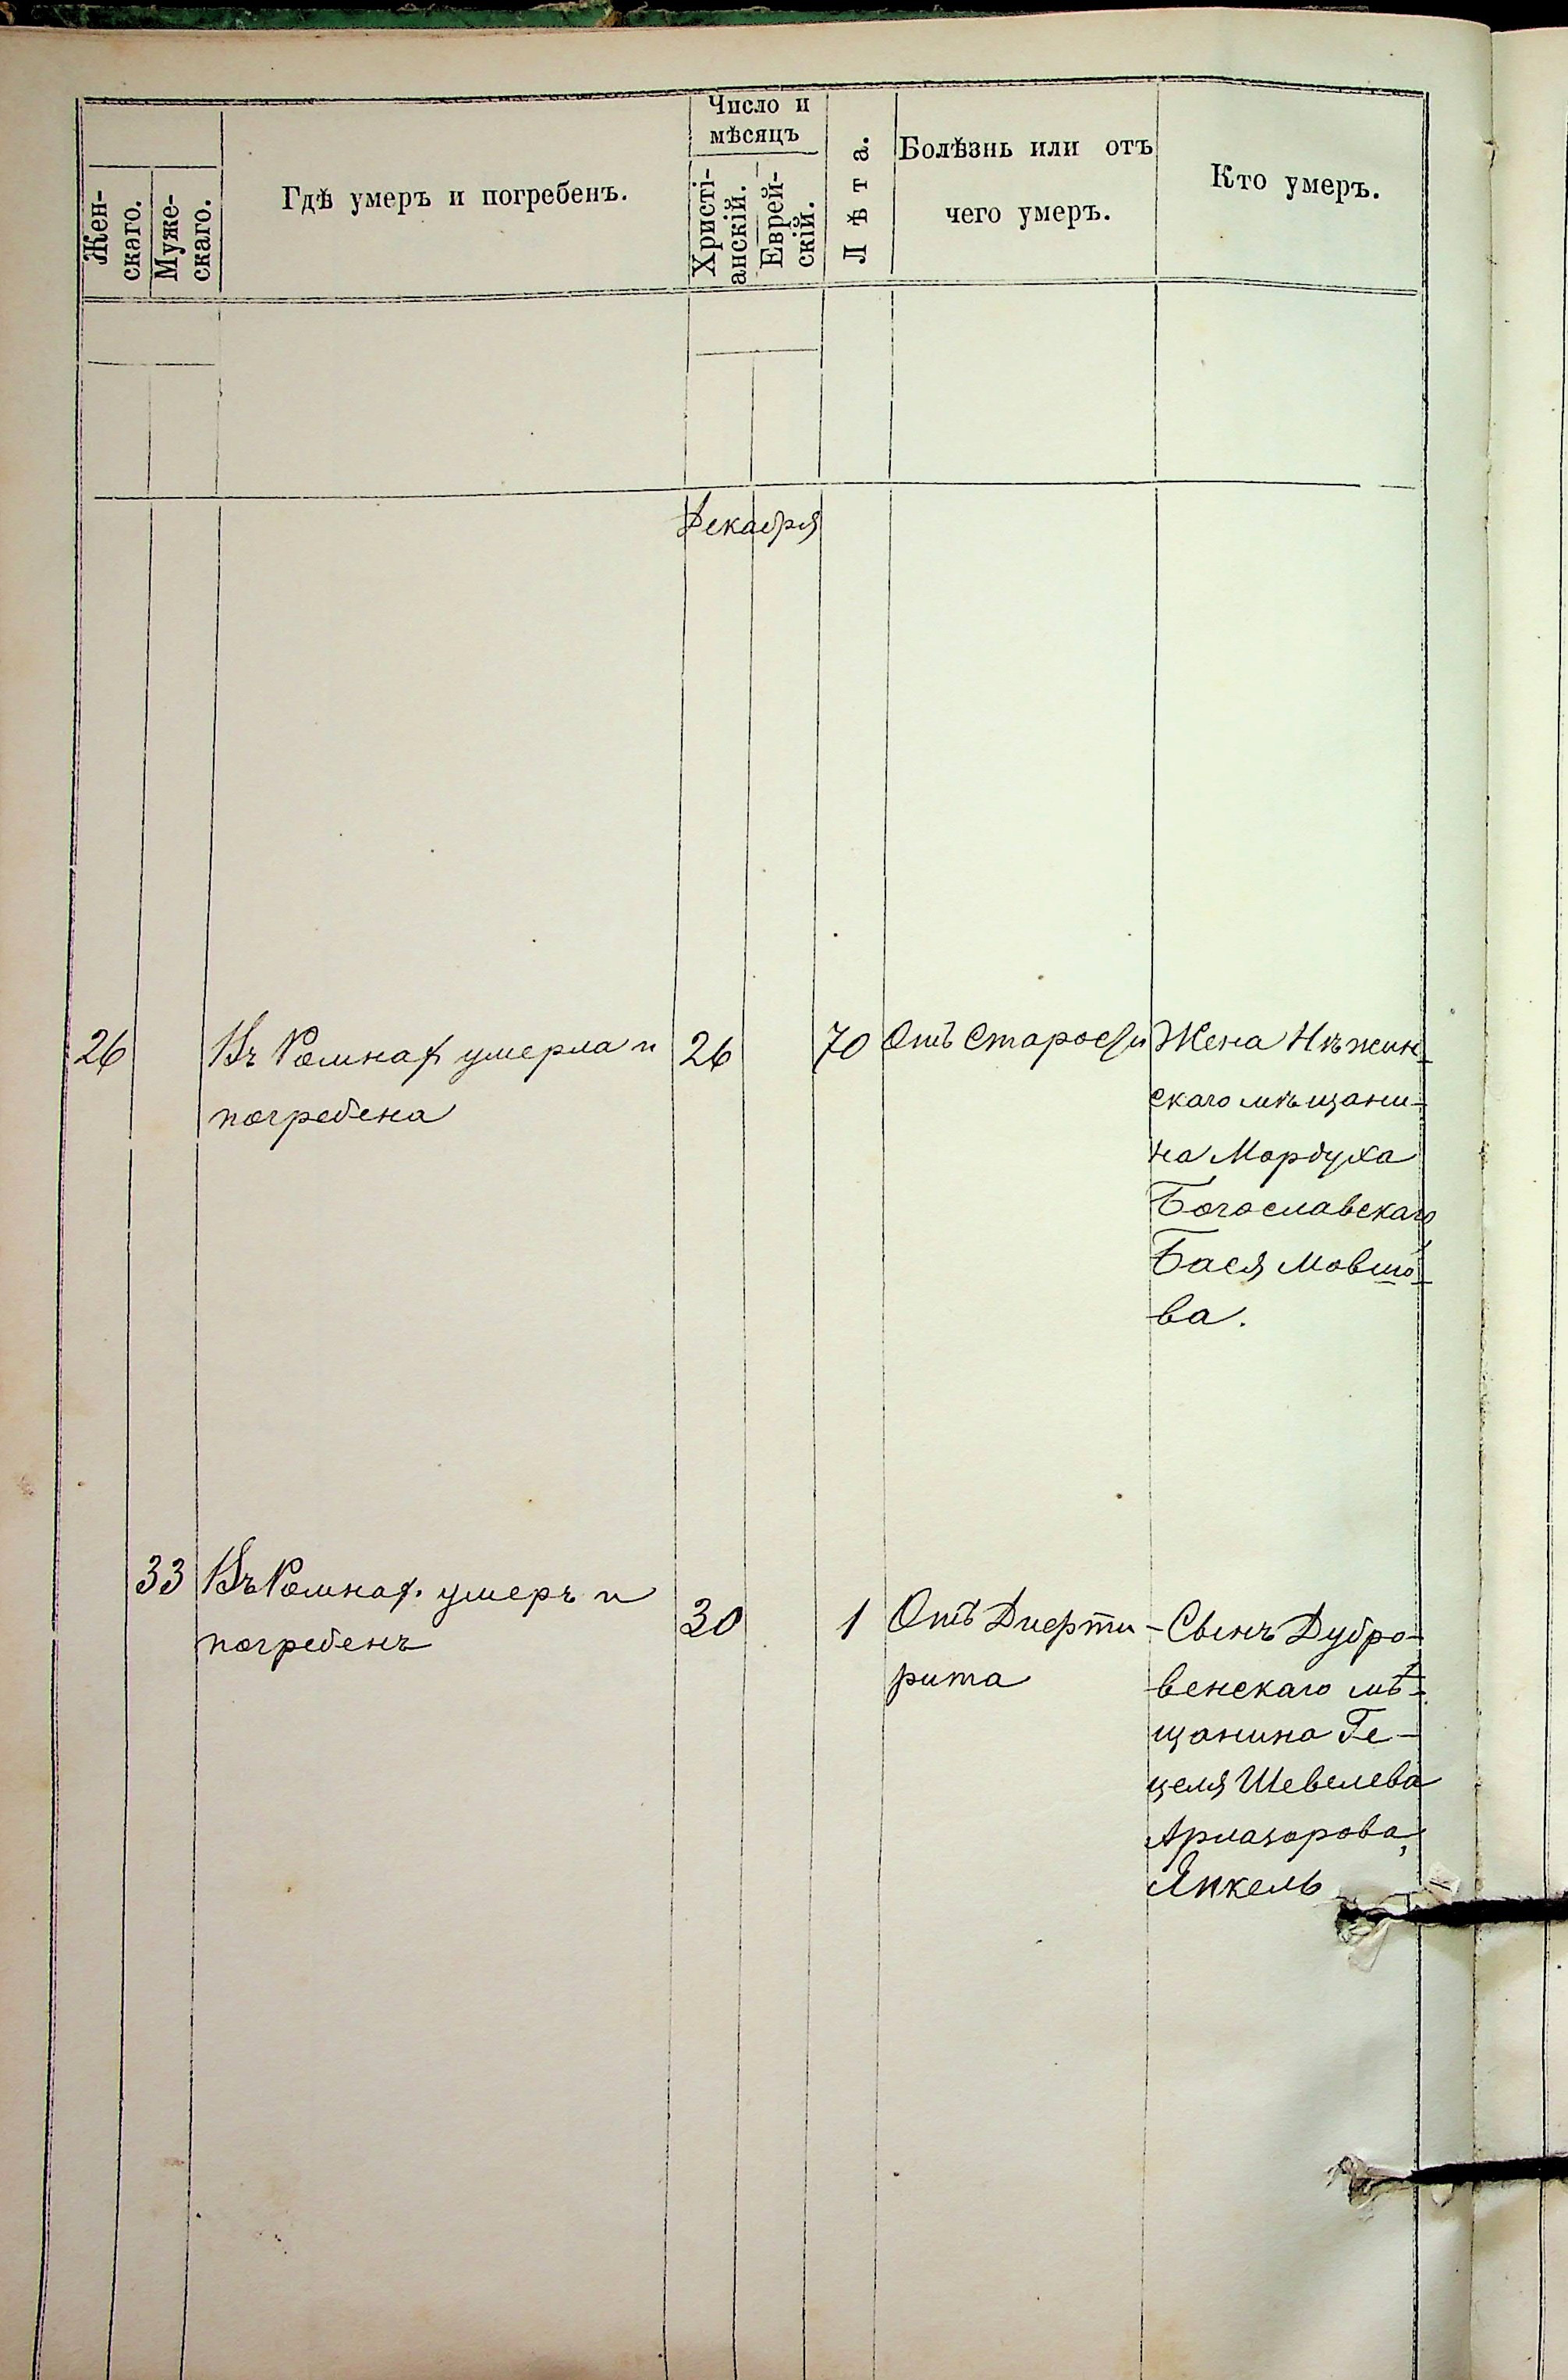 Жен-
скаго.
Муже-
скаго.
Гдѣ умеръ и погребенъ.
Число и
мѣсяцъ
Христі-
анскій.
Еврей-
скій.
Лѣта.
Болѣзнь или отъ
чего умеръ.
Кто умеръ.
Декабря
26
Въ Ромнах умерла и
погребена
26
70
Отъ старости
Жена Нѣжин-
скаго мѣщани-
на Мордуха
Богославскаго,
Бася Мовшо-
ва.
33
Въ Ромнах. умеръ и
погребенъ
30
1
Отъ Дифти-
рита
Сынъ Дубро-
венскаго мѣ-
щанина Ге-
целя Шевелева
Армазорова,
Янкель